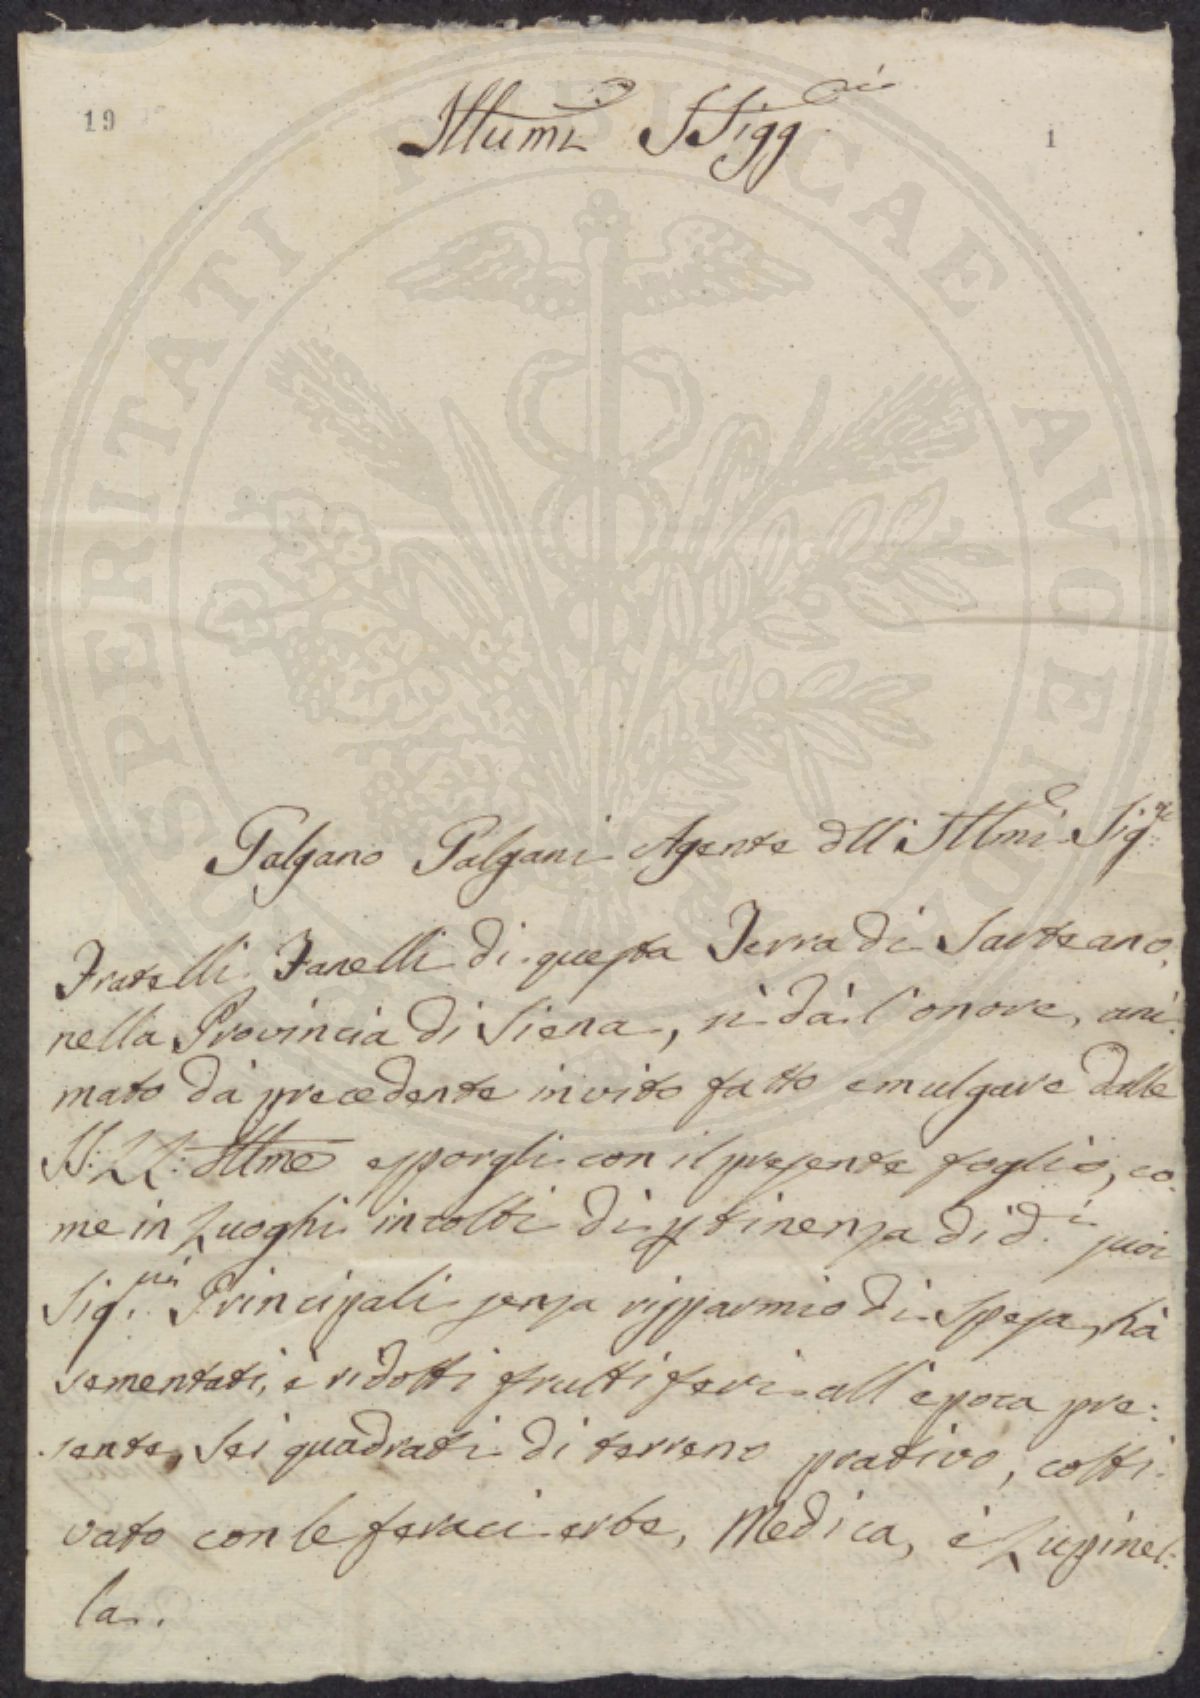 19
1
Illumi SSigg.ri
Galgano Galgani Agente dlli Illmi Sig.ri
Fratelli Fanelli di questa Terra di Sarteano,
nella Provincia di Siena, si dà l'onore, ani:
mato da precedente invito fatto emulgare dalle
SS: LL: Illme esporgli con il presente foglio, co:
me in Luoghi incolti di ptinenza di d.i suoi
Sig.ri Principali senza risparmio di spesa, hà
sementati, e ridotti fruttiferi all'epoca pre:
sente, sei quadrati di terreno prativo, colti:
vato con le feraci erbe, Medica, e Lupinel:
la.
PROSPERITATI PUBLICAE AUGENDAE